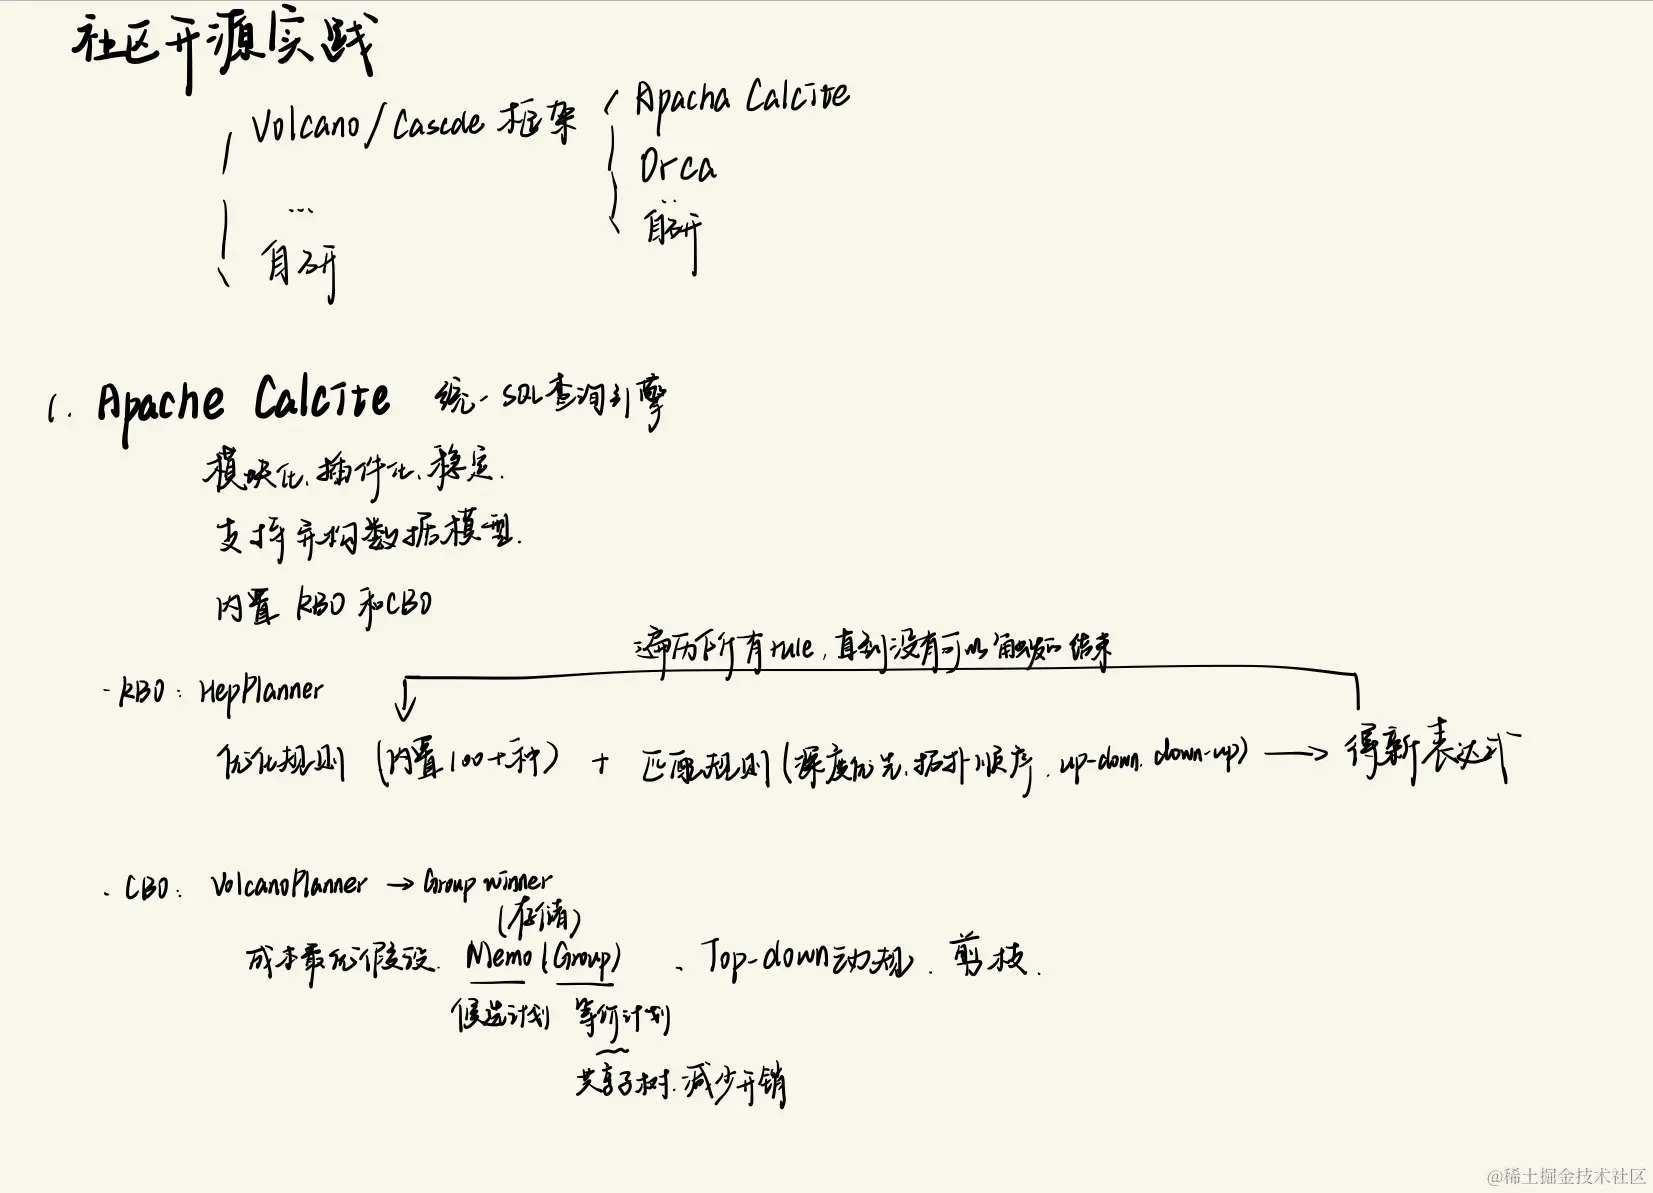 社区开源实践
Volcano/Cascade 框架
Apacha Calcite
Orca
...
自研
...
自研
1. Apache Calcite 统一SQL查询引擎
模块化、插件化、稳定.
支持异构数据模型.
内置 RBO 和CBO
遍历所有rule, 直到没有可以触发的结束
- RBO: HepPlanner
优化规则 (内置100+种) + 匹配规则(深度优先、拓扑顺序、up-down、down-up) → 得新表达式
- CBO: VolcanoPlanner → Group winner
(存储)
成本最优假设、Memo(Group)、Top-down动规、剪枝.
候选计划 等价计划
共享子树.减少开销
@稀土掘金技术社区